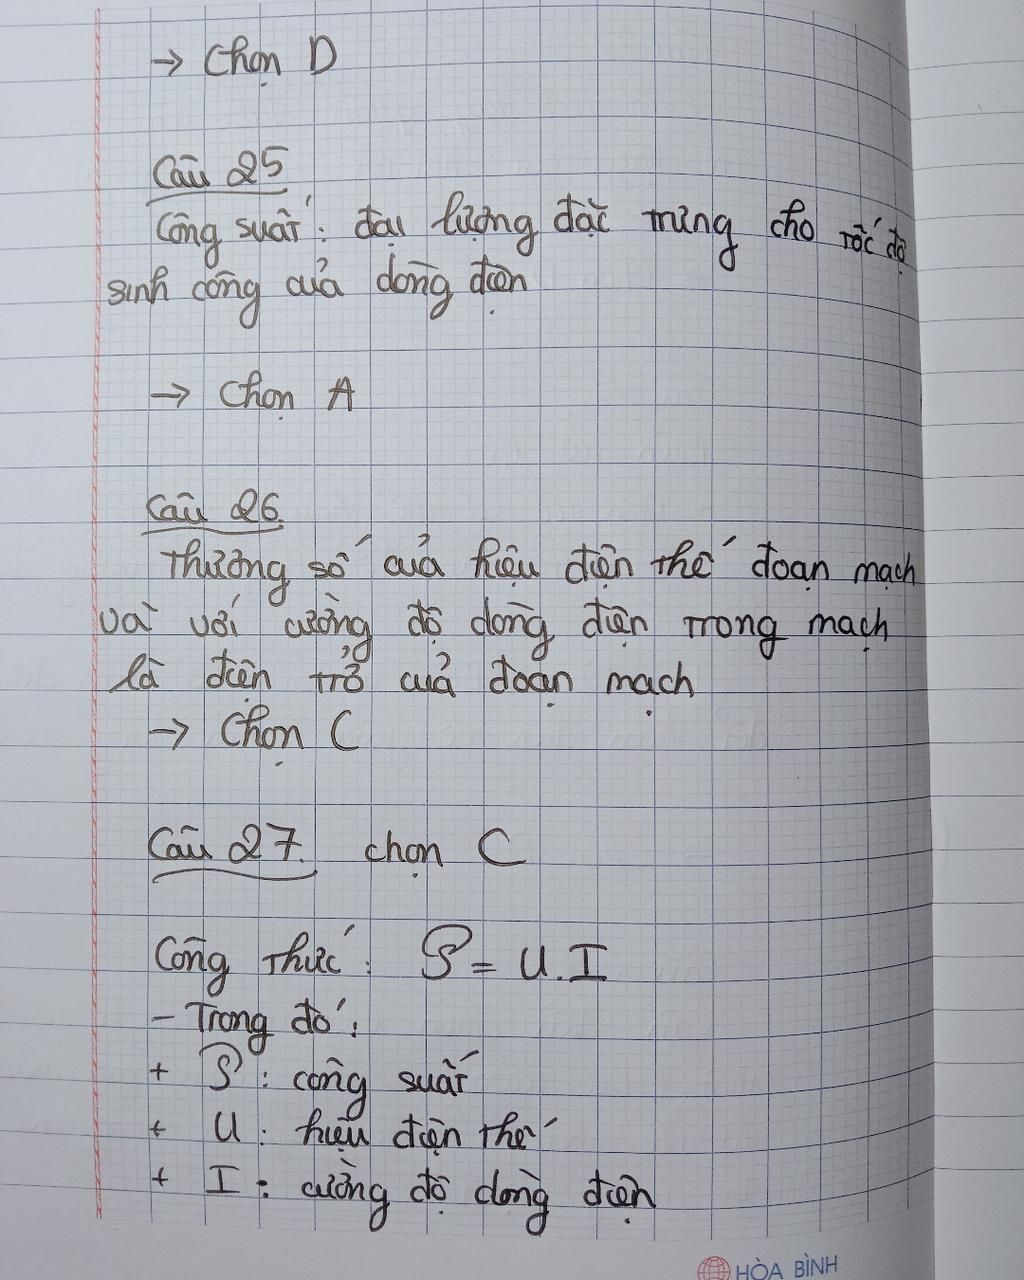 → Chọn D
Câu 25
Công suất: đại lượng đặc trưng cho tốc độ
sinh công của dòng điện
→ Chọn A
Câu 26
Thương số của hiệu điện thế đoạn mạch
và với cường độ dòng điện trong mạch
là điện trở của đoạn mạch
→ Chọn C
Câu 27. chọn C
Công thức: P = U.I
- Trong đó:
+ P: công suất
+ U: hiệu điện thế
+ I: cường độ dòng điện
HÒA BÌNH